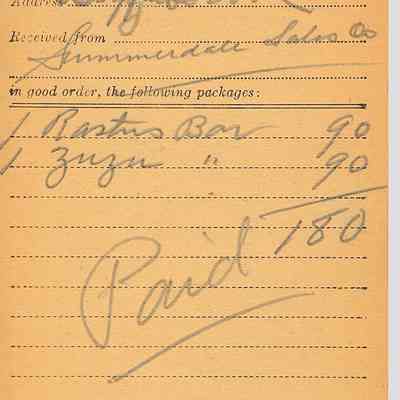 Address
Received from Summerdale Sales Co
in good order, the following packages:
1 Rastus Bar 90
1 Zuzu " 90
180
Paid